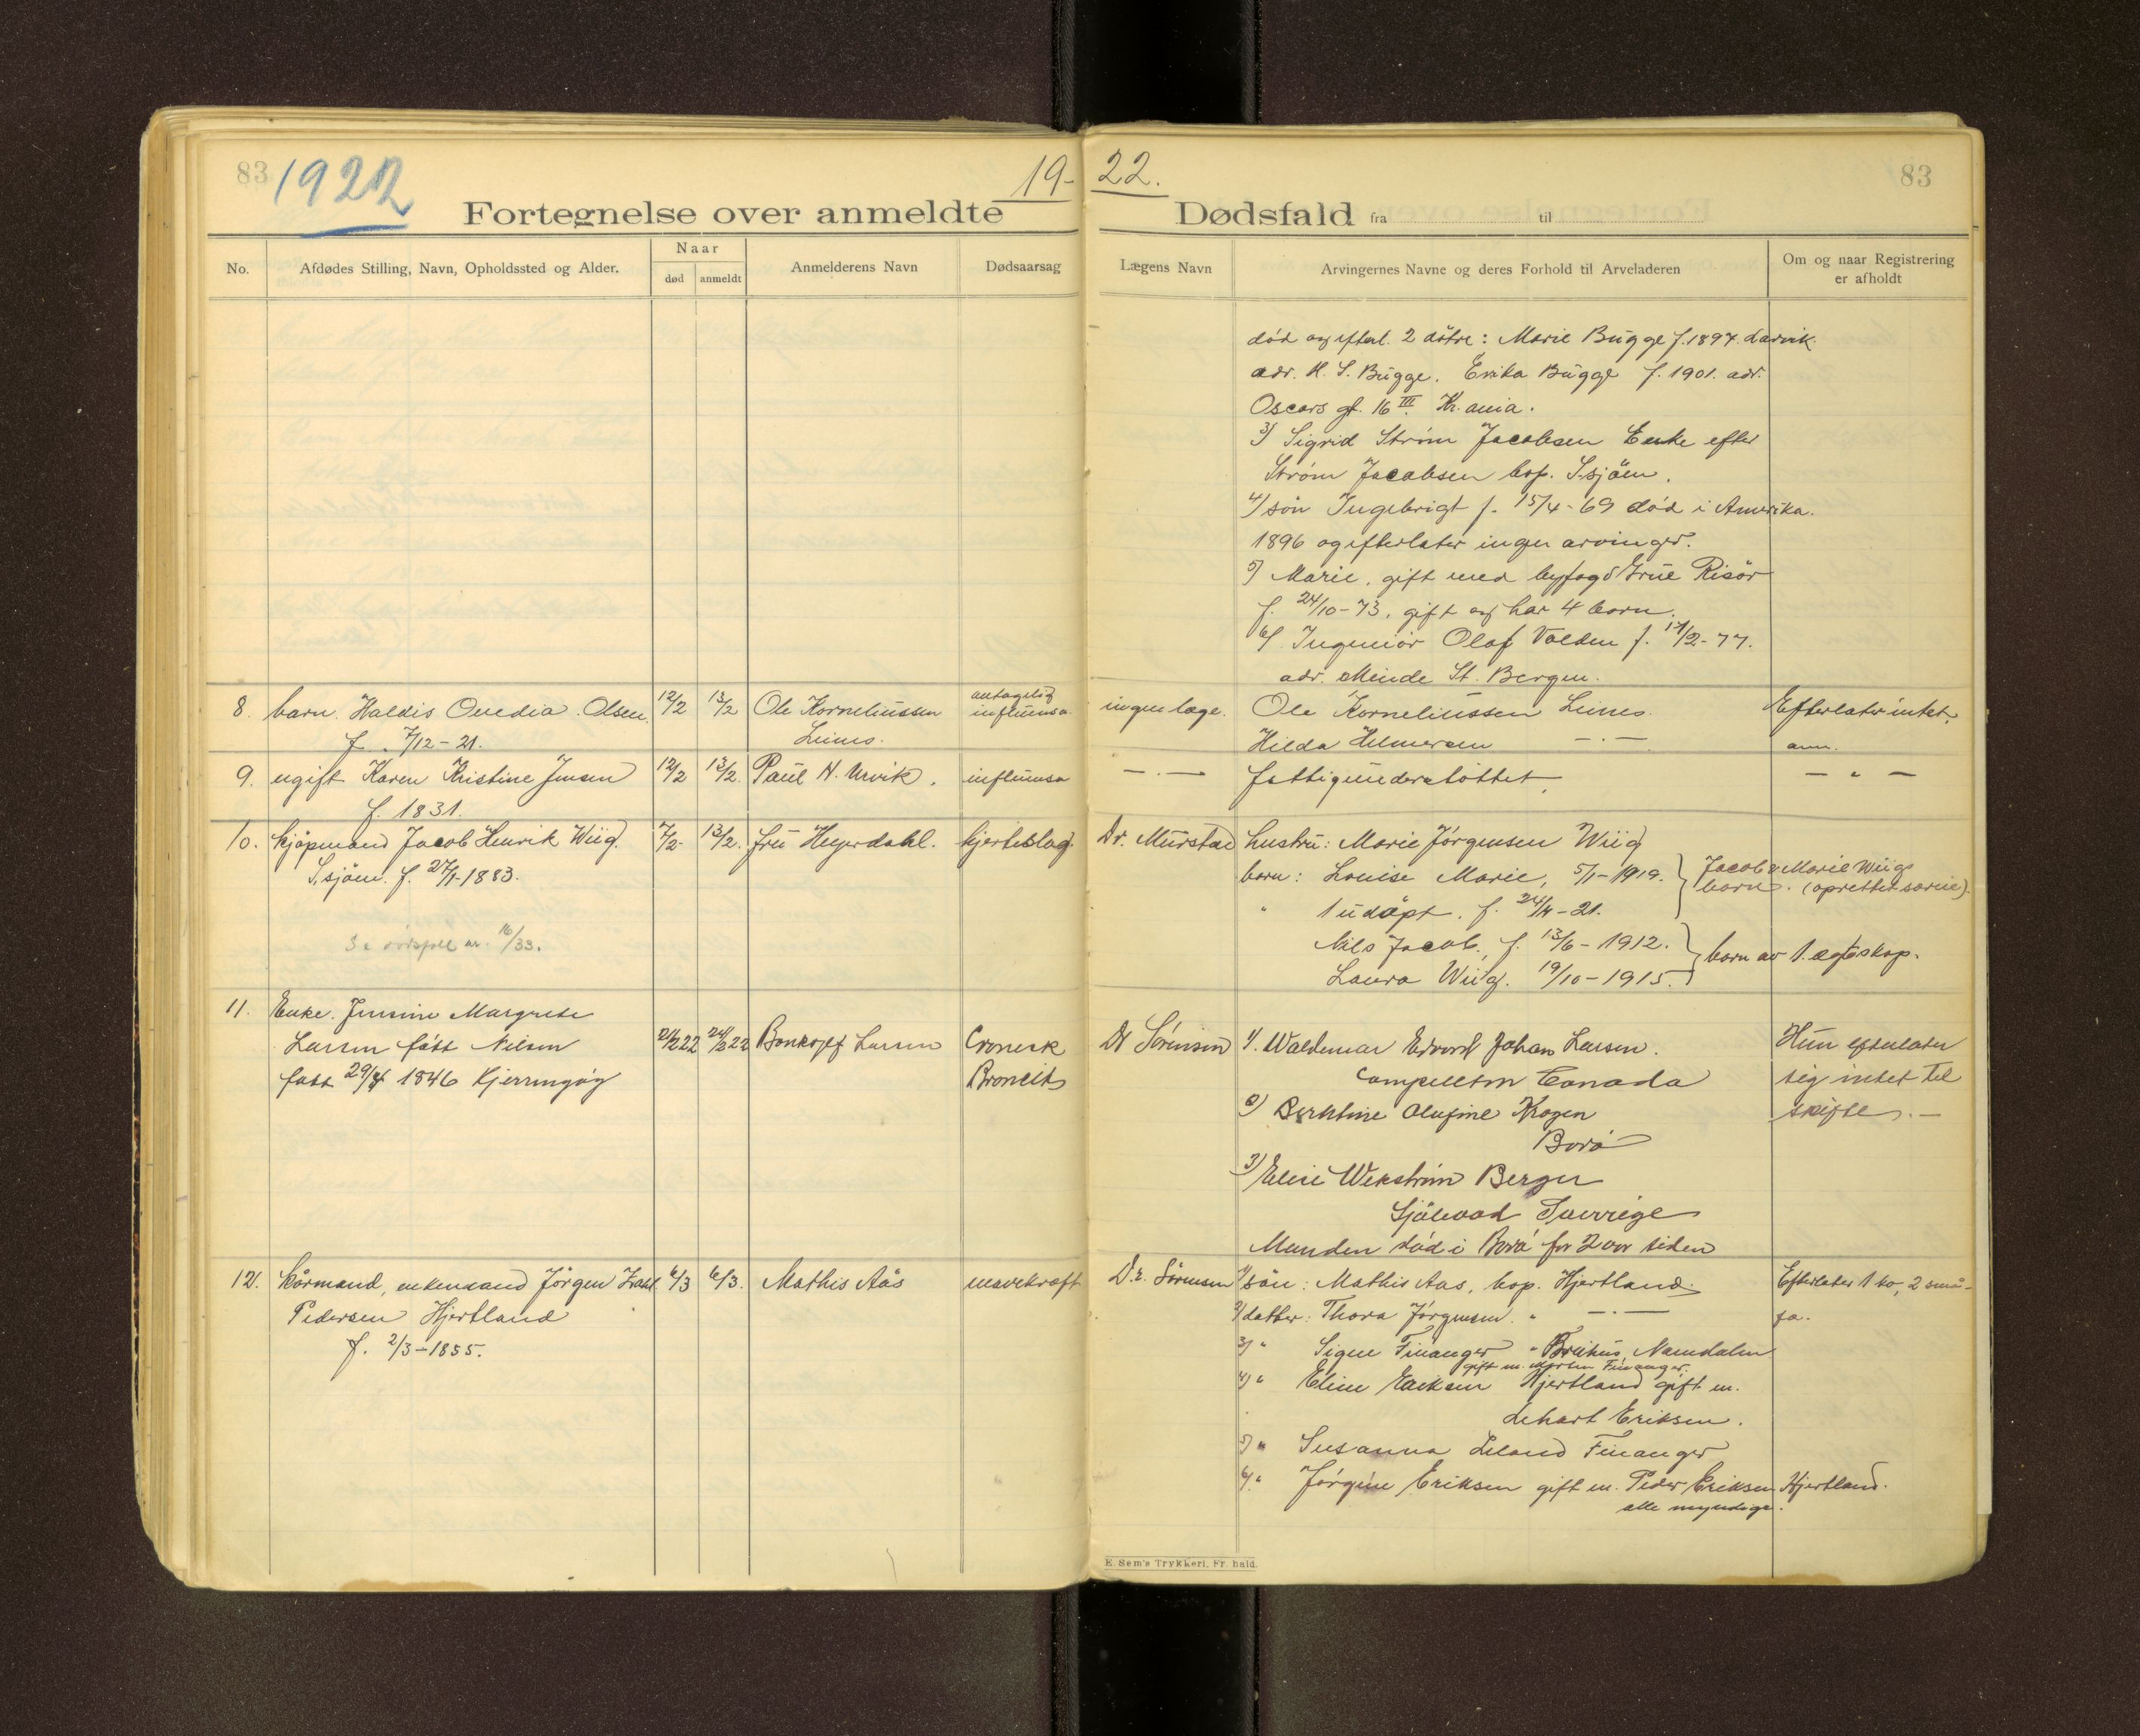 83
1922
19-
22.
83
Fortegnelse over anmeldte
Dødsfald fra til
No.
Afdødes Stilling, Navn, Opholdssted og Alder.
Naar
død
anmeldt
Anmelderens Navn
Dødsaarsag
Lægens Navn
Arvingernes Navne og deres Forhold til Arveladeren
Om og naar Registrering
er afholdt
död og efterl. 2 dötre: Marie Bugge f. 1897. Larvik
adr. H. S. Bugge. Erika Bugge f. 1901. adr.
Oscars gt. 16 III. Kr.ania.
3) Sigrid Ström Jacobsen Enke efter
Ström Jacobsen bop. S.sjöen.
4) sön Ingebrigt f. 15/4-69 död i Amerika.
1896 og efterlater ingen arvinger.
5) Marie, gift med byfogd Grue Risör
f. 24/10-73, gift og har 4 born.
6) Ingeniör Olaf Volden f. 17/2-77.
adr. Minde St. Bergen.
8. barn. Haldis Ovedia Olsen. 12/2 13/2 Ole Korneliussen antagelig influensa ingen læge. Ole Korneliussen Leines. Efterlater intet.
f. 7/12-21. Leines. Hilda Helmersen -.-
9. ugift Karen Kristine Jensen 12/2 13/2. Paul N. Urvik. influensa -.- fattigunderstöttet. - " -
f. 1831.
10. kjöpmand Jacob Henrik Wiig. 7/2- 13/2. fru Heyerdahl. hjerteslag. Dr. Murstad hustru: Marie Jörgensen Wiig
S.sjöen. f. 27/1-1883. born: Louise Marie, 5/1-1919. Jacob & Marie Wiigs
born. (oprettet særeie).
" 1 udöpt. f. 24/4-21.
Se dödsfall nr. 16/33. Nils Jacob, f. 13/6-1912. born av 1. ægteskap.
Laura Wiig. 19/10-1915.
11. Enke. Jensine Margrete
Larsen fött Nilsen 21/2 22 24/2 22 Larsen Cronisk Dr Sörensen 1). Waldemar Edvard Johan Larsen. Hun efterlater
fött 29/4 1846 Kjerringöy Broncit Canada sig intet til
2) Olufine Krogen skifte. -
Bodö
3) Elise Wekström Berger
Själevad Sverrige
Manden död i Bodö for 2 aar siden
12. kårmand, enkemand Jörgen Zahl 6/3 6/3. Mathis Aås mavekræft Dr. Sörensen 1) sön: Mathis Aas, bop. Hjertland. Efterlater 1 ko, 2 små-
Pedersen Hjertland 2) datter: Thora Jörgensen. " -.- fa.
f. 2/3-1855. 3) " Signe Finanger " Namdalen
gift m. Morten Finanger.
4) " Eline Eriksen Hjertland gift m.
Lehart Eriksen.
5) " Susanna Leland Finanger
6) " Jörgine Eriksen gift m. Peder Eriksen Hjertland.
alle myndige.
E. Sem's Trykkeri, Fr. hald.